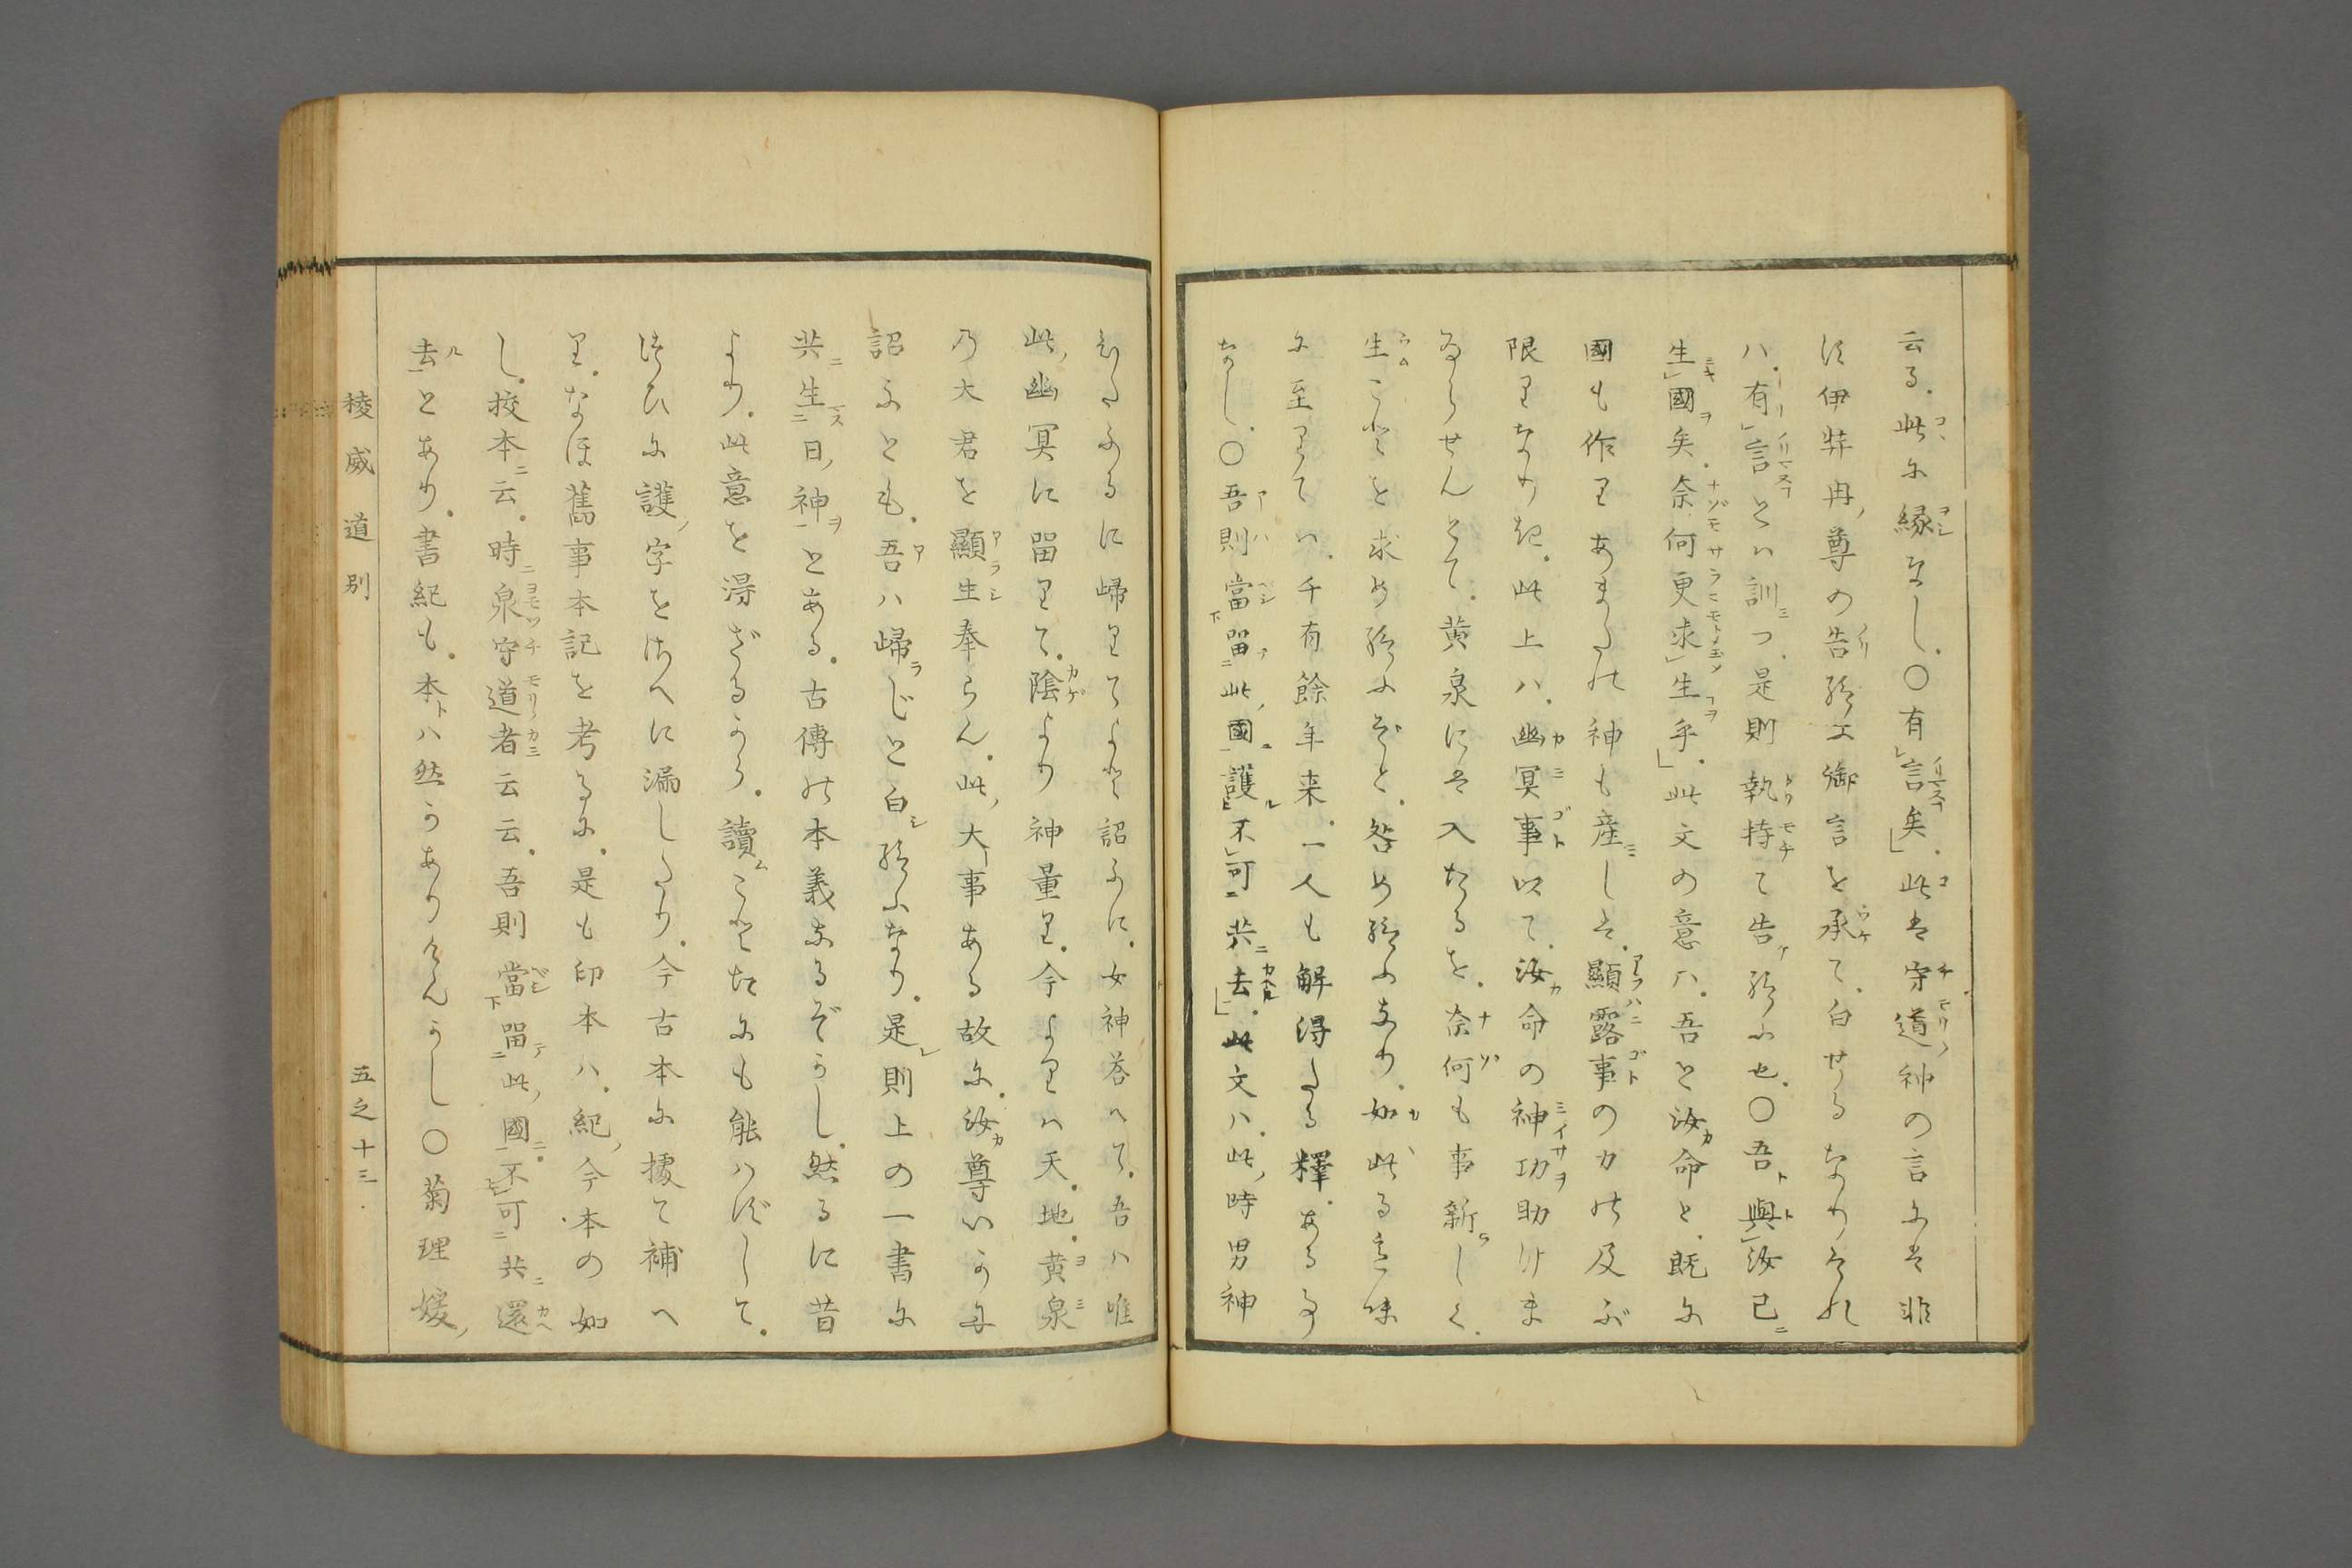 云る。此に縁なし。〇有言矣。此は守道神の言にハ非
ず伊弉冉ノ尊の告給ふ御言を承て。白せるなりされ
ハ。有言とハ訓つ。是則執持て告給ふ也。〇吾與汝已
生國矣。奈何更求生乎。此文の意ハ。吾と汝命と。既に
國も作りあまたの神も産しは。顯露事の力の及ぶ
限りなりき。此上ハ。幽冥事以て。汝命の神功助けま
ゐらせんとて。黄泉にハ入たるを。奈何も事新しく。
生ことを求め給ふぞと。咎め給ふなり。如此る意味
に至りてハ。千有餘年来。一人も解得たる釋。ある事
なし。〇吾則當留此ノ國護不可共去。此文ハ。此ノ時男神
ひたふるに歸りてよと詔ふに。女神答へて。吾ハ唯
此ノ幽冥に留りて。陰より神量り。今よりハ天。地。黄泉
乃大君を顯生奉らん。此ノ大事ある故に。汝尊いかに
詔ふとも。吾ハ歸らじと白し給ふなり。是則上の一書に
共生日ノ神とある。古傳の本義なるぞかし。然るに昔
より。此意を得ざるから。讀ことだにも能ハずして。
つひに護ノ字をさへに漏したり。今古本に據て補へ
り。なほ舊事本記を考るに。是も印本ハ。紀ノ今本の如
し。挍本ニ云。時泉守道者云云。吾則當留此ノ國。不可共還
去とあり。書紀も。本トハ然かありけんかし〇菊理媛ノ
稜威道別
五之十三